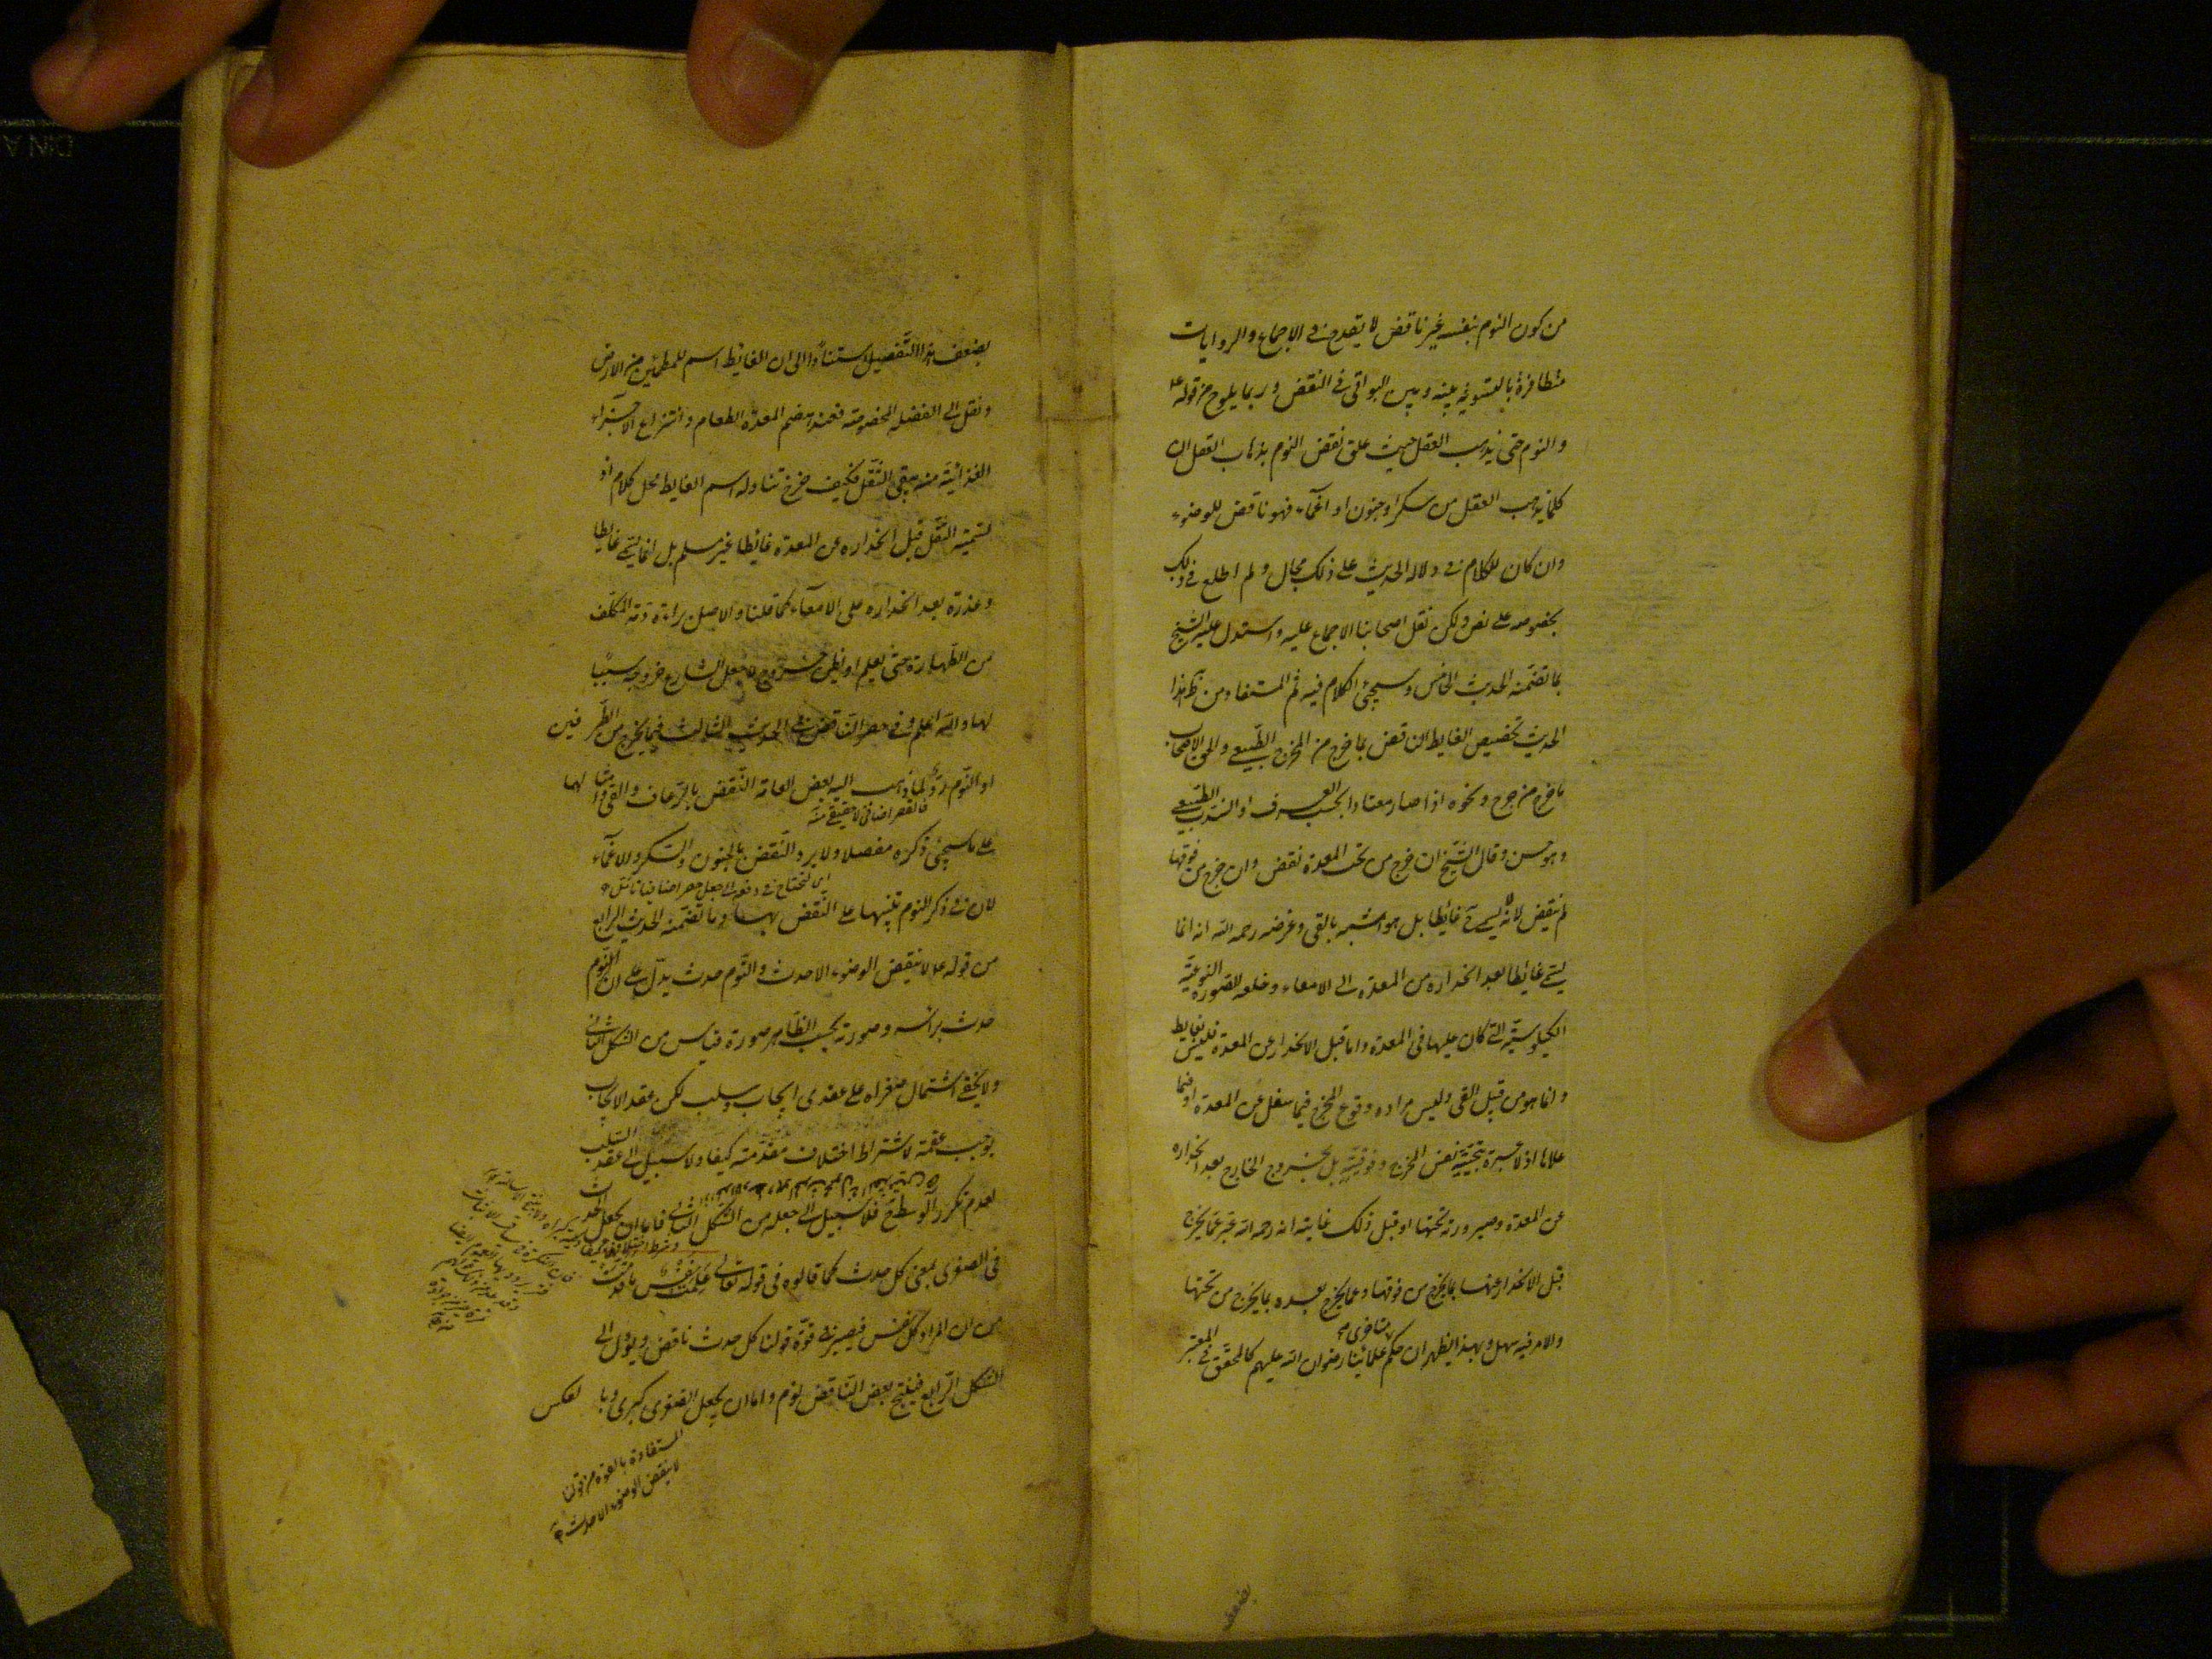 من كون النوم بنفسه غير ناقض لا يقدح في الاجماع والروايات
متظافرة بالتسوية بينه وبين البواقي في النقض وربما يلوح من قوله ع
والنوم حتى يذهب العقل حيث علق نقض النوم بذهاب العقل ان
كلما يذهب العقل من سكر او جنون او اغماء فهو ناقض للوضوء
وان كان للكلام في دلالة الحديث على ذلك مجال ولم اطلع في ذلك
بخصوصه على نص ولكن نقل اصحابنا الاجماع عليه واستدل عليه الشيخ
بما تضمنه الحديث الخامس وسيجئ الكلام فيه ثم المستفاد من هذا
الحديث تخصيص الغايط الناقض بما خرج من المخرج الطبيعي والحق الاصحاب
ما خرج من جرح ونحوه اذا صار معتادا بحسب العرف او الطبيعي
وهو حسن وقال الشيخ ان خرج من تحت المعدة نقض وان خرج من فوقها
لم ينقض لانه لا يسمى غائطا بل هو اشبه بالقئ وغرضه رحمه الله انه انما
يسمى غائطا بعد انحداره من المعدة الى الامعاء وخلعه للصورة النوعية
الكيلوسية التي كان عليها في المعدة واما قبل الانحدار عن المعدة فليس بغايط
وانما هو من قبيل القئ وليس مراده وقوع المخرج فيما سفل عن المعدة او فيما
علاها اذ لا عبرة بتحتية نفس المخرج وفوقيته بل بخروج الخارج بعد انحداره
عن المعدة وصيرورته تحتها او قبل ذلك غايته انه رحمه الله عبر عما يخرج
قبل الانحدار عنها بما يخرج من فوقها وعما يخرج بعده بما يخرج من تحتها
والامر فيه سهل وبهذا يظهر ان حكم متاخرى علمائنا رضوان الله عليهم كالمحقق في المعتبر
بضعف
بضعف هذا التفصيل استنادا الى ان الغائط اسم للمطمئن من الارض
ونقل الى الفضلة المخصوصة فعند هضم المعدة الطعام وانتزاع الاجزاء
الغذائية منه يبقى الثفل فكيف خرج تناوله اسم الغايط محل كلام اذ
تسمية الثفل قبل انحداره عن المعدة غائطا غير مسلم بل انما يسمى غايطا
وعذرة بعد انحداره الى الامعاء كما قلنا والاصل براءة ذمة المكلف
من الطهارة حتى يعلم او يظن خروج ما جعل الشارع خروجه سببا
لها والله اعلم وفي حصر الناقض في الحديث الثالث فيما يخرج من الطرفين
او النوم رد لما ذهب اليه بعض العامة من النقض بالرعاف والقئ وامثالها
فالقصر اضافي لا حقيقي منه
على ما سيجئ ذكره مفصلا ولا يرد النقض بالجنون والسكر والاغماء
اى لا نحتاج في دفعه الى جعل حصر اضافيا
لان في ذكر النوم تنبيها على النقض بها وما تضمنه الحديث الرابع
من قوله ع لا ينقض الوضوء الا حدث والنوم حدث يدل على ان النوم
حدث برأسه وصورته بحسب الظاهر صورة قياس من الشكل الثاني
ولا يخفى اشتمال صغراه على عقدى ايجاب وسلب لكن عقد الايجاب
يوجب عقمه لاشتراط اختلاف مقدمتيه كيفا ولا سبيل الى عقد السلب
لعدم تكرر الوسط ح فلا سبيل الى جعله من الشكل الثاني فاما ان يجعل الحدث
في الصغرى بمعنى كل حدث كما قالوه في قوله تعالى علمت نفس ما قدمت
من ان المراد كل نفس فيصير في قوة قولنا كل حدث ناقض ويؤول الى
الشكل الرابع فينتج بعض الناقض نوم واما ان يجعل الصغرى كبرى وبالعكس
المستفادة بالقوة من قولنا
لا ينقض الوضوء الا حدث